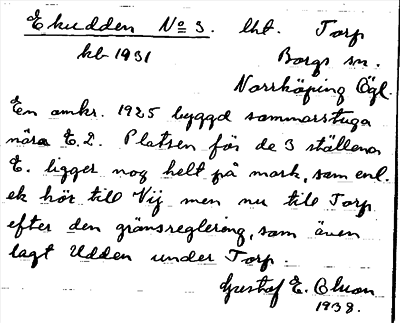 Ekudden No 3. lht. Torp
kb 1931 Borgs sn.
Norrköping Ögl.
En omkr. 1925 byggd sommarstuga
nära E. 2. Platsen för de 3 ställena
E. ligger nog helt på mark, som enl.
ek hör till Vij men nu till Torp
efter den gränsreglering, som även
lagt Udden under Torp.
Gustaf E. Olson
1938.